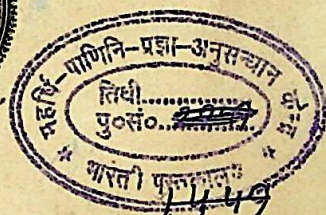 महर्षि-पाणिनि-प्रज्ञा-अनुसन्धान केन्द्र
तिथी..............
पु०सं०....
भारती पुस्तकालय
1449